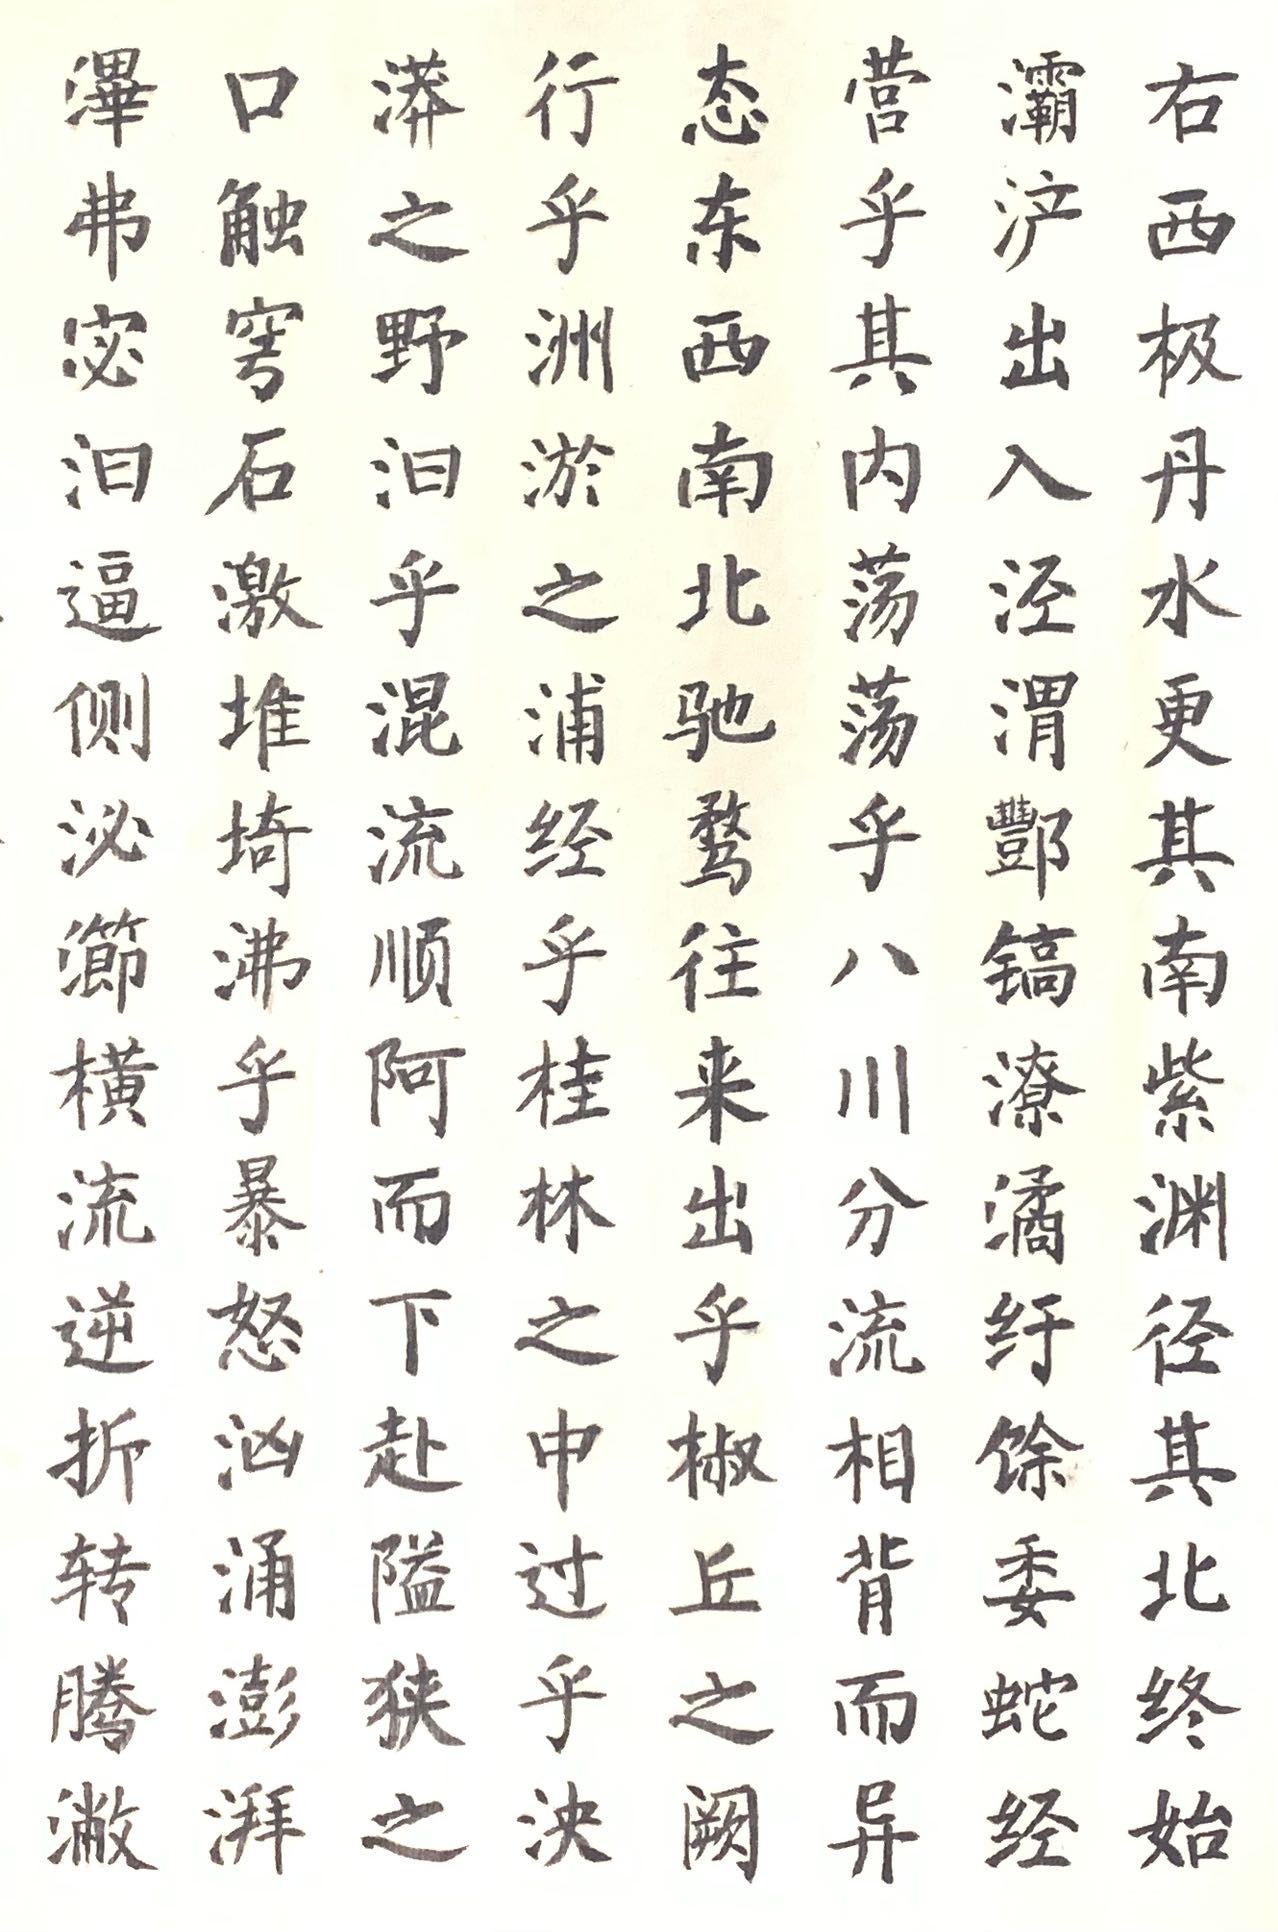 右西极丹水更其南紫渊径其北终始
灞浐出入泾渭酆镐潦潏纡馀委蛇经
营乎其内荡荡乎八川分流相背而异
态东西南北驰骛往来出乎椒丘之阙
行乎洲淤之浦经乎桂林之中过乎泱
漭之野汩乎混流顺阿而下赴隘狭之
口触穹石激堆埼沸乎暴怒汹涌澎湃
滭弗宓汩逼侧泌瀄横流逆折转腾潎